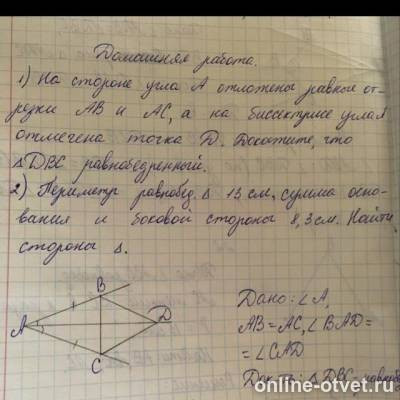 Домашняя работа.
1) На стороне угла А отложены равные от-
резки АВ и АС, а на биссектрисе угла А
отмечена точка D. Докажите, что
ΔDBC равнобедренный.
2) Периметр равнобед. Δ 13 см, сумма осно-
вания и боковой стороны 8,3 см. Найти
стороны Δ.
B
A
D
C
Дано: ∠A,
AB=AC, ∠BAD=
=∠CAD
Док-ть: ΔDBC-равноб
online-otvet.ru